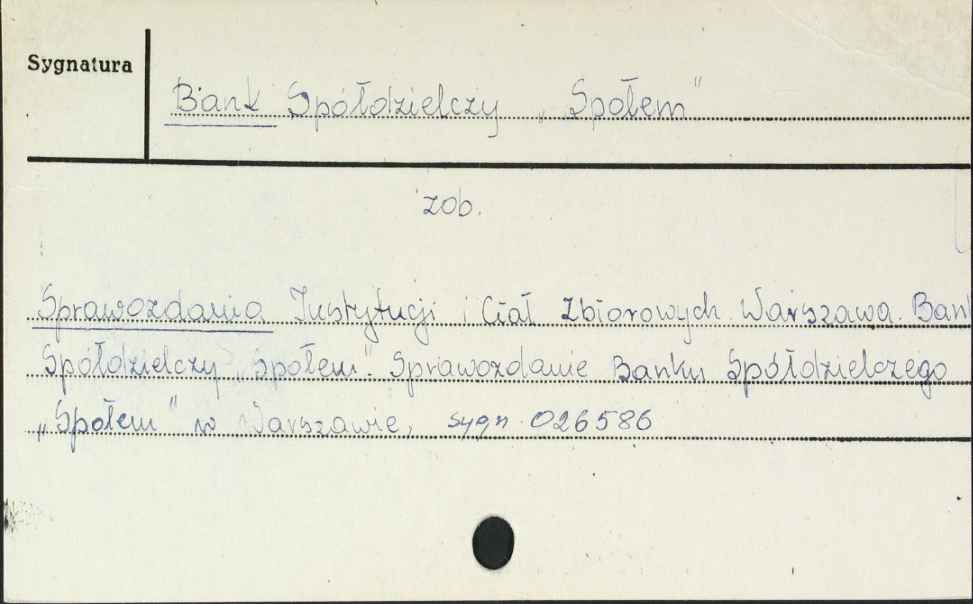 Sygnatura
Bank Spółdzielczy „Społem"
zob.
Sprawozdania Instytucji i Ciał Zbiorowych. Warszawa. Ban
Spółdzielczy „Społem". Sprawozdanie Banku Spółdzielczego
„Społem" w Warszawie, sygn. 026586